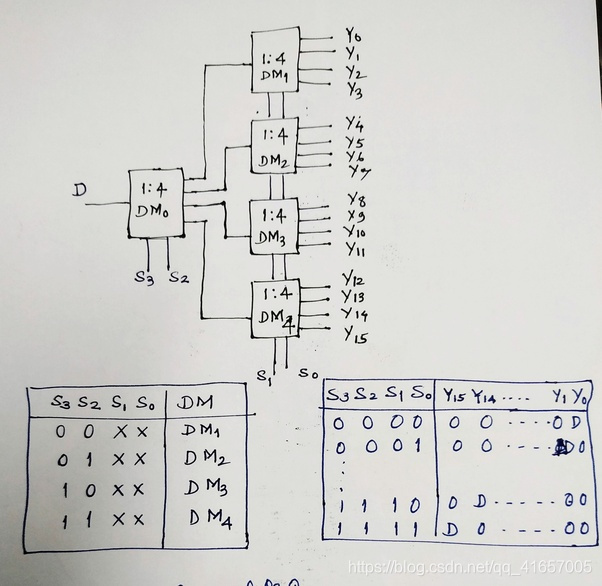 Y0
Y1
1:4
DM1
Y2
Y3
Y4
Y5
1:4
DM2
Y6
Y7
D
1:4
DM0
Y8
Y9
1:4
DM3
Y10
Y11
S3 S2
Y12
1:4
Y13
DM4
Y14
Y15
S1 S0
S3 S2 S1 S0 DM
0 0 X X DM1
0 1 X X DM2
1 0 X X DM3
1 1 X X DM4
S3 S2 S1 S0 Y15 Y14 .... Y1 Y0
0 0 0 0 0 0 ----- 0 D
0 0 0 1 0 0 ----- D 0
:
1 1 1 0 0 D ------ 0 0
1 1 1 1 D 0 ------ 0 0
https://blog.csdn.net/qq_41657005